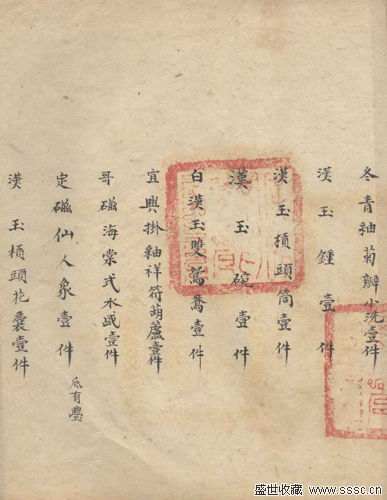 冬青釉菊瓣小洗壹件
漢玉鍾壹件
漢玉槓頭筒壹件
漢玉碗壹件
白漢玉雙鴛鴦壹件
宜興掛釉祥符葫蘆壹件
哥磁海棠式水盛壹件
定磁仙人象壹件
底有璺
漢玉槓頭花囊壹件
盛世收藏 www.sssc.cn